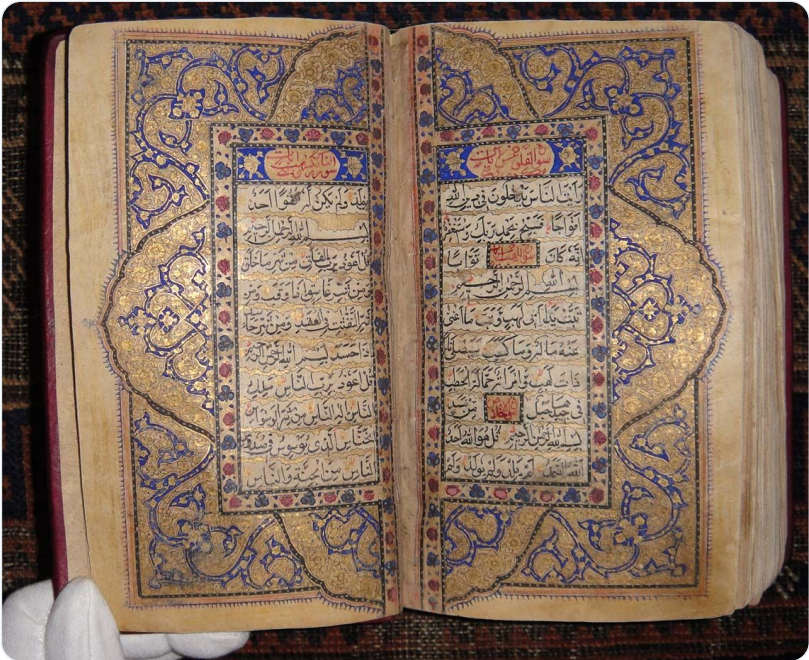 سورة الفلق خمس آيات
رأيت الناس يدخلون في دين الله
أفواجا فسبح بحمد ربك واستغفره
إنه كان توابا
بسم الله الرحمن الرحيم
تبت يدا أبي لهب وتب ما أغنى
عنه ماله وما كسب سيصلى نارا
ذات لهب وامرأته حمالة الحطب
في جيدها حبل من مسد
بسم الله الرحمن الرحيم قل هو الله أحد
الله الصمد لم يلد ولم يولد ولم
ولم يكن له كفوا أحد
بسم الله الرحمن الرحيم
قل أعوذ برب الفلق من شر ما خلق
ومن شر غاسق إذا وقب ومن
شر النفثت في العقد ومن شر حاسد
إذا حسد بسم الله الرحمن الرحيم
قل أعوذ برب الناس ملك
الناس إله الناس من شر الوسواس
الخناس الذي يوسوس في صدور
الناس من الجنة والناس